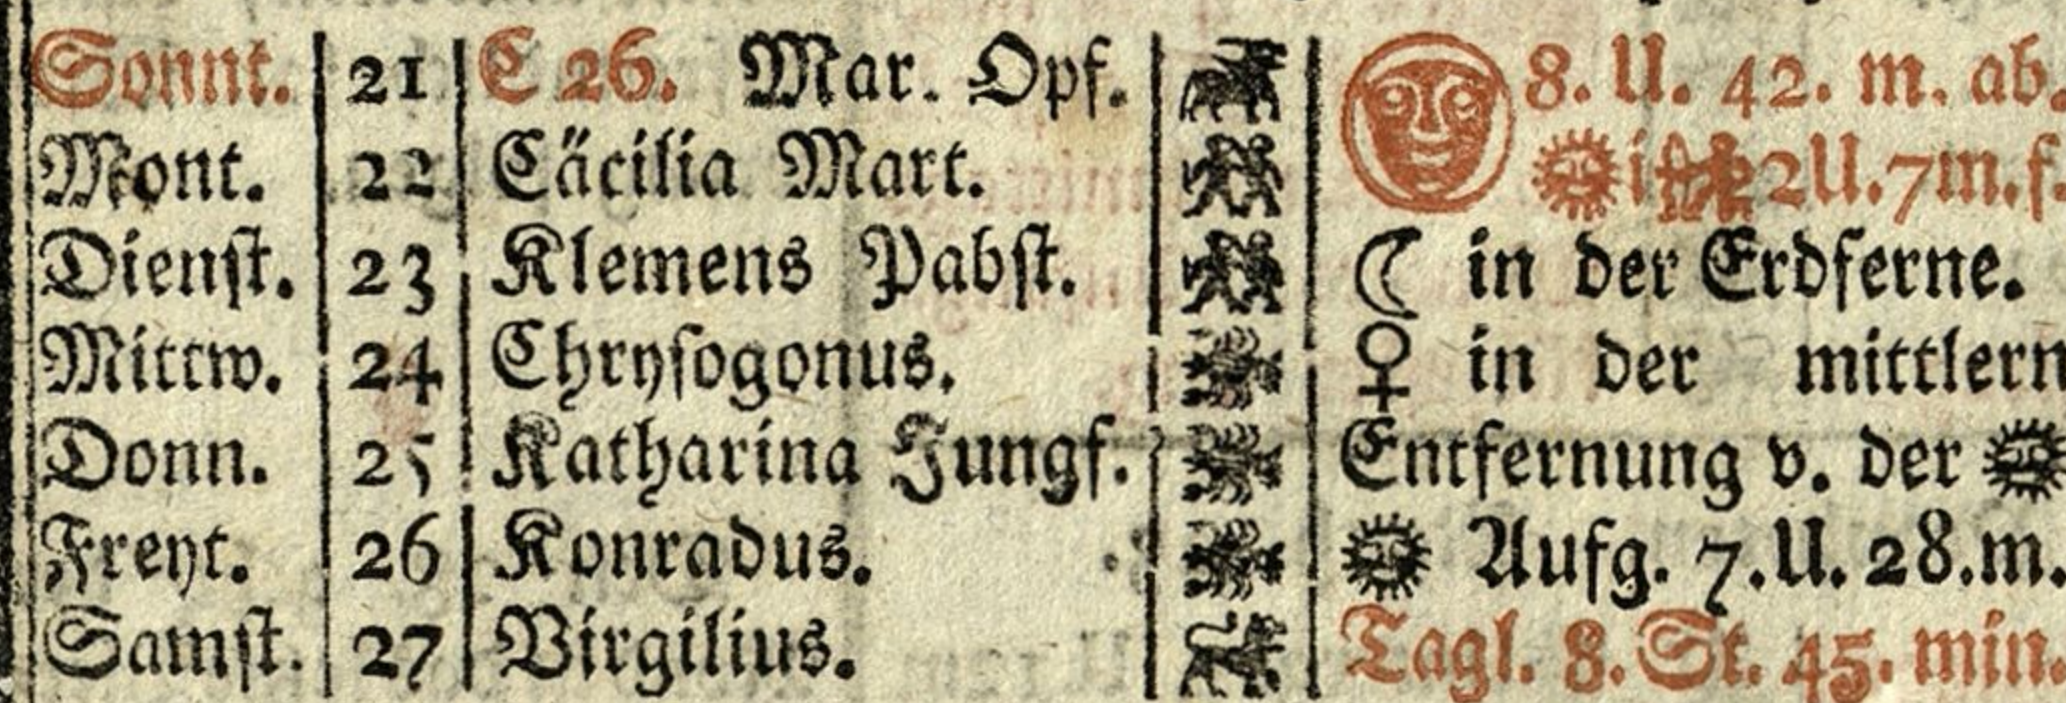 Sonnt. 21 C 26. Mar. Opf. 8. U. 42. m. ab.
Mont. 22 Cäcilia Mart. ☉ i ♐ 2U. 7m. f.
Dienſt. 23 Klemens Pabſt. ☾ in der Erdferne.
Mittw. 24 Chryſogonus. ♀ in der mittlern
Donn. 25 Katharina Jungf. Entfernung v. der ☉
Freyt. 26 Konradus. ☉ Aufg. 7. U. 28. m.
Samſt. 27 Virgilius. Tagl. 8. St. 45. min.